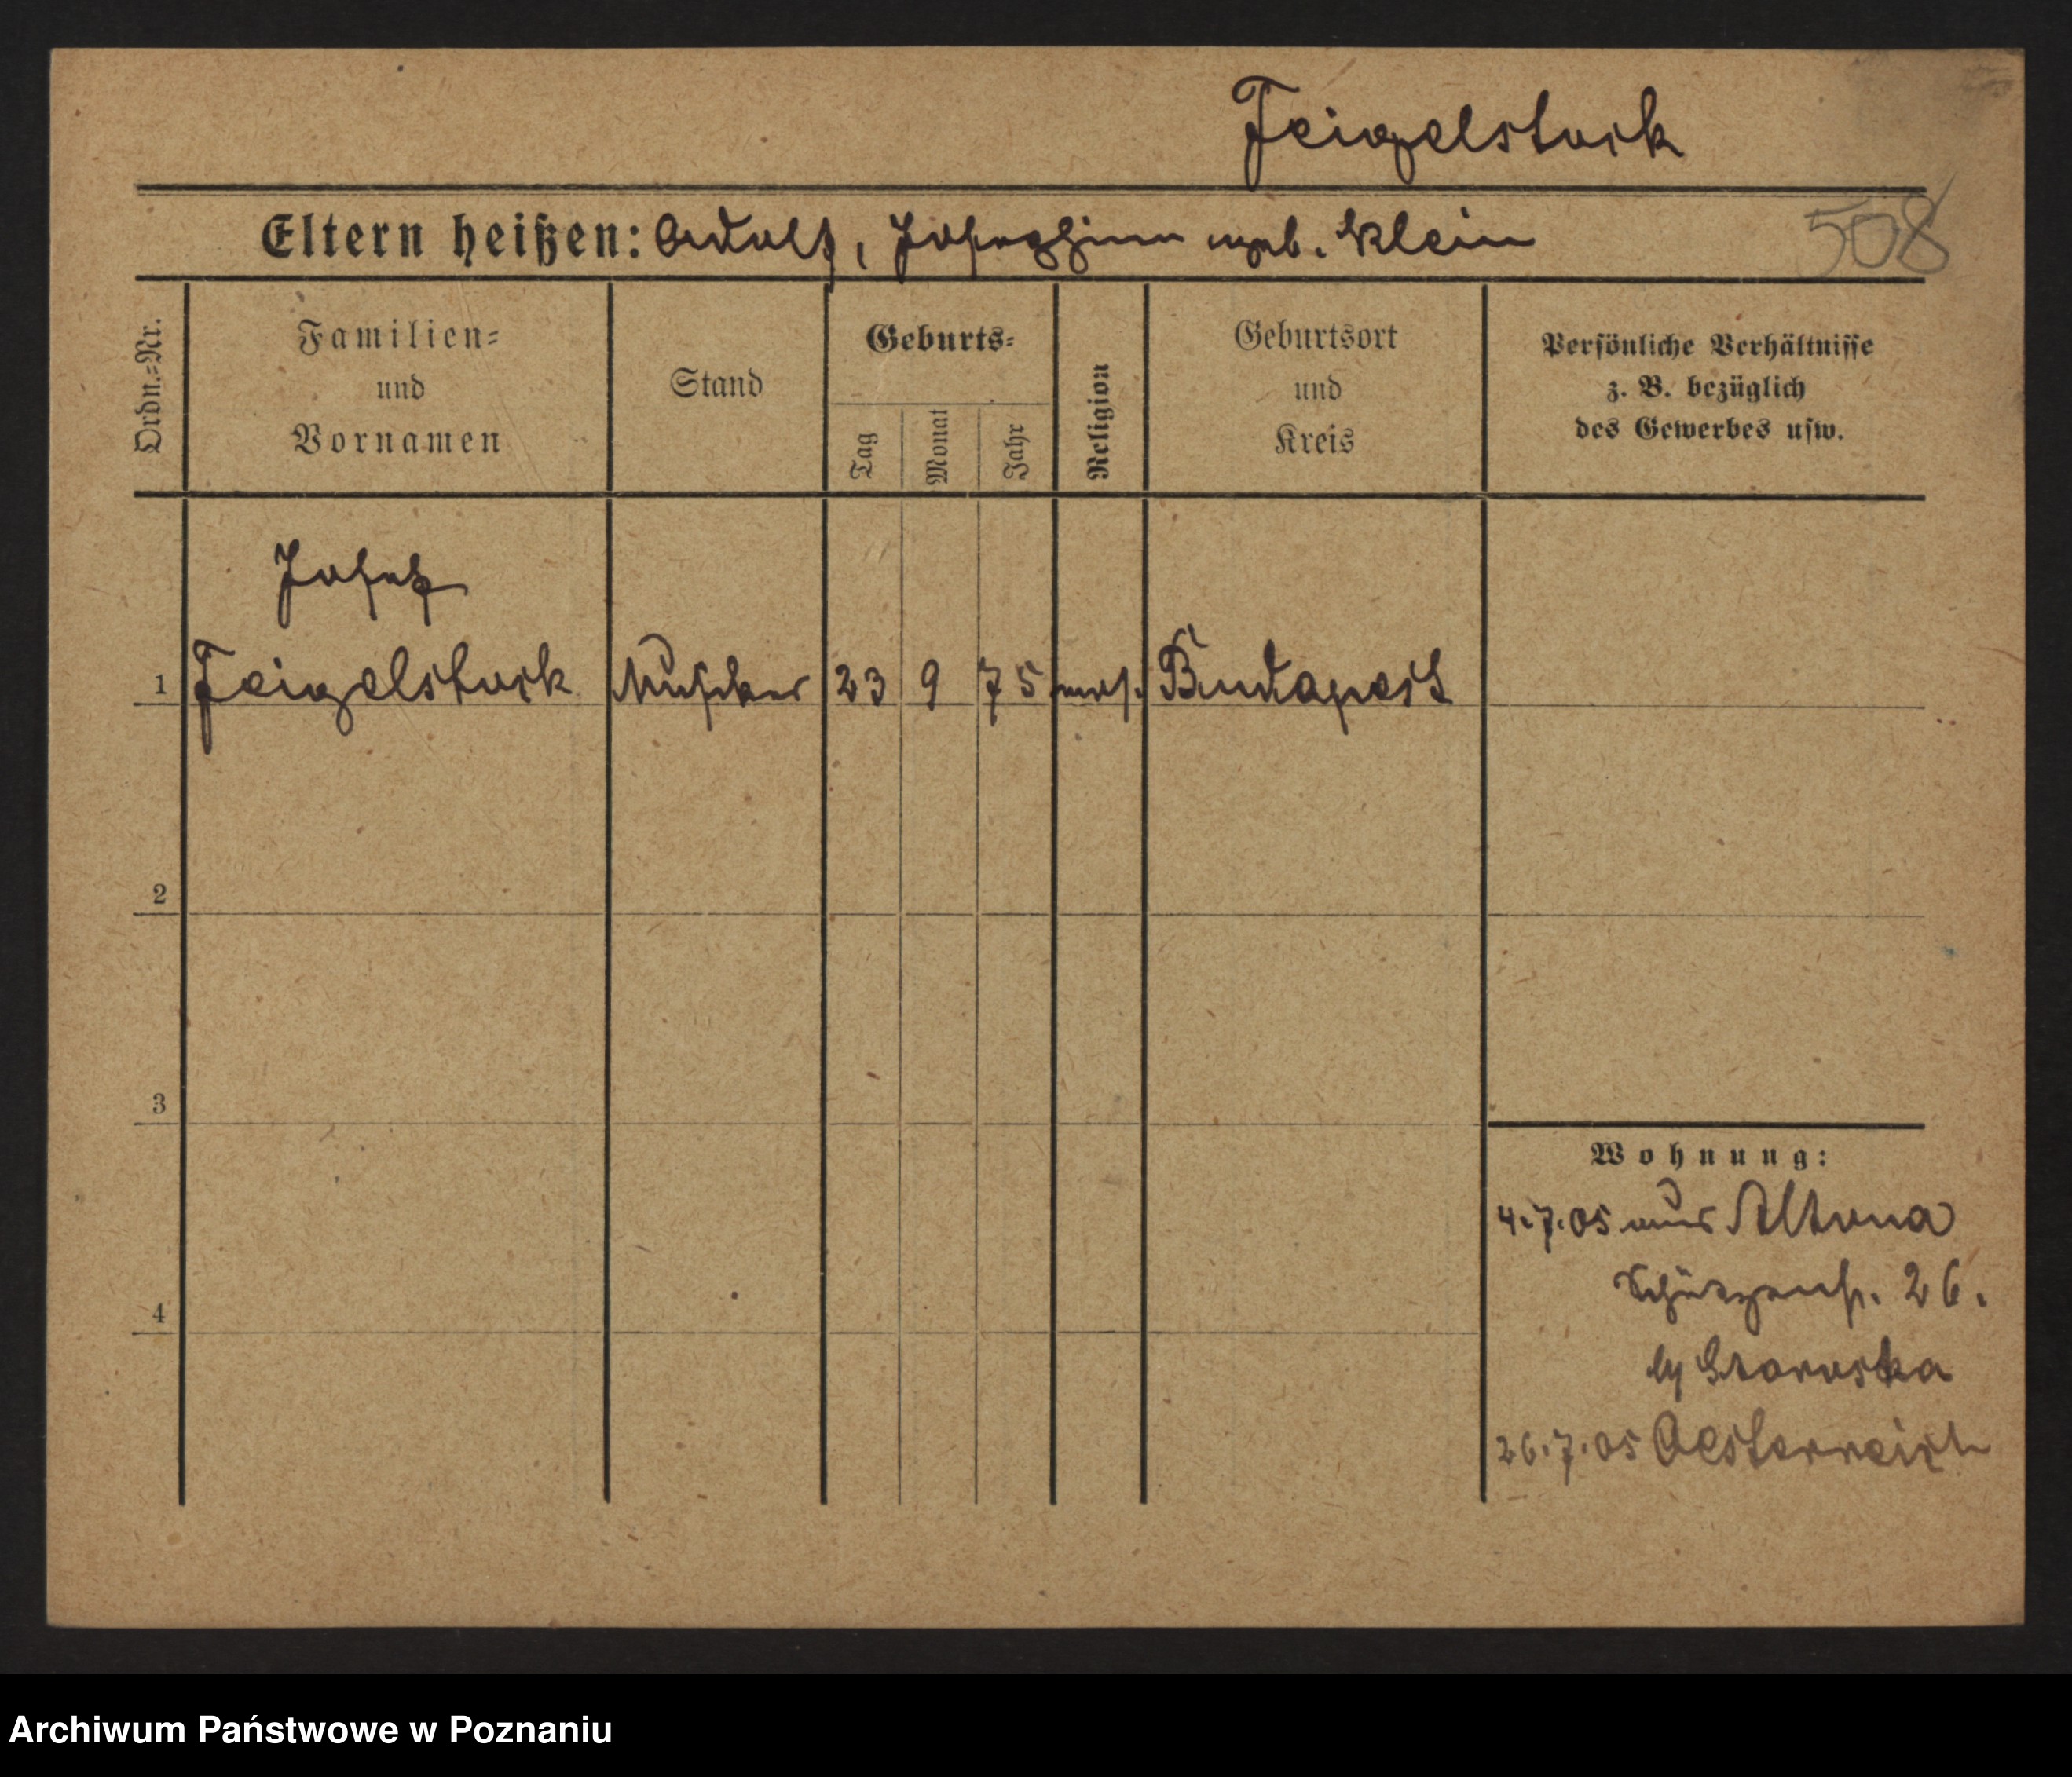 Feigelstock
508
Eltern heißen: Adolf, Josephine geb. Klein
Ordn.-Nr.
Familien- und Vornamen
Stand
Geburts-
Tag
Monat
Jahr
Religion
Geburtsort und Kreis
Persönliche Verhältnisse z. B. bezüglich des Gewerbes usw.
Josef
1 Feigelstock Musiker 23 9 75 mos. Budapest
2
3
4
Wohnung:
4.7.05 aus Altona
Schützenstr. 26.
by
26.7.05 Oesterreich
Archiwum Państwowe w Poznaniu